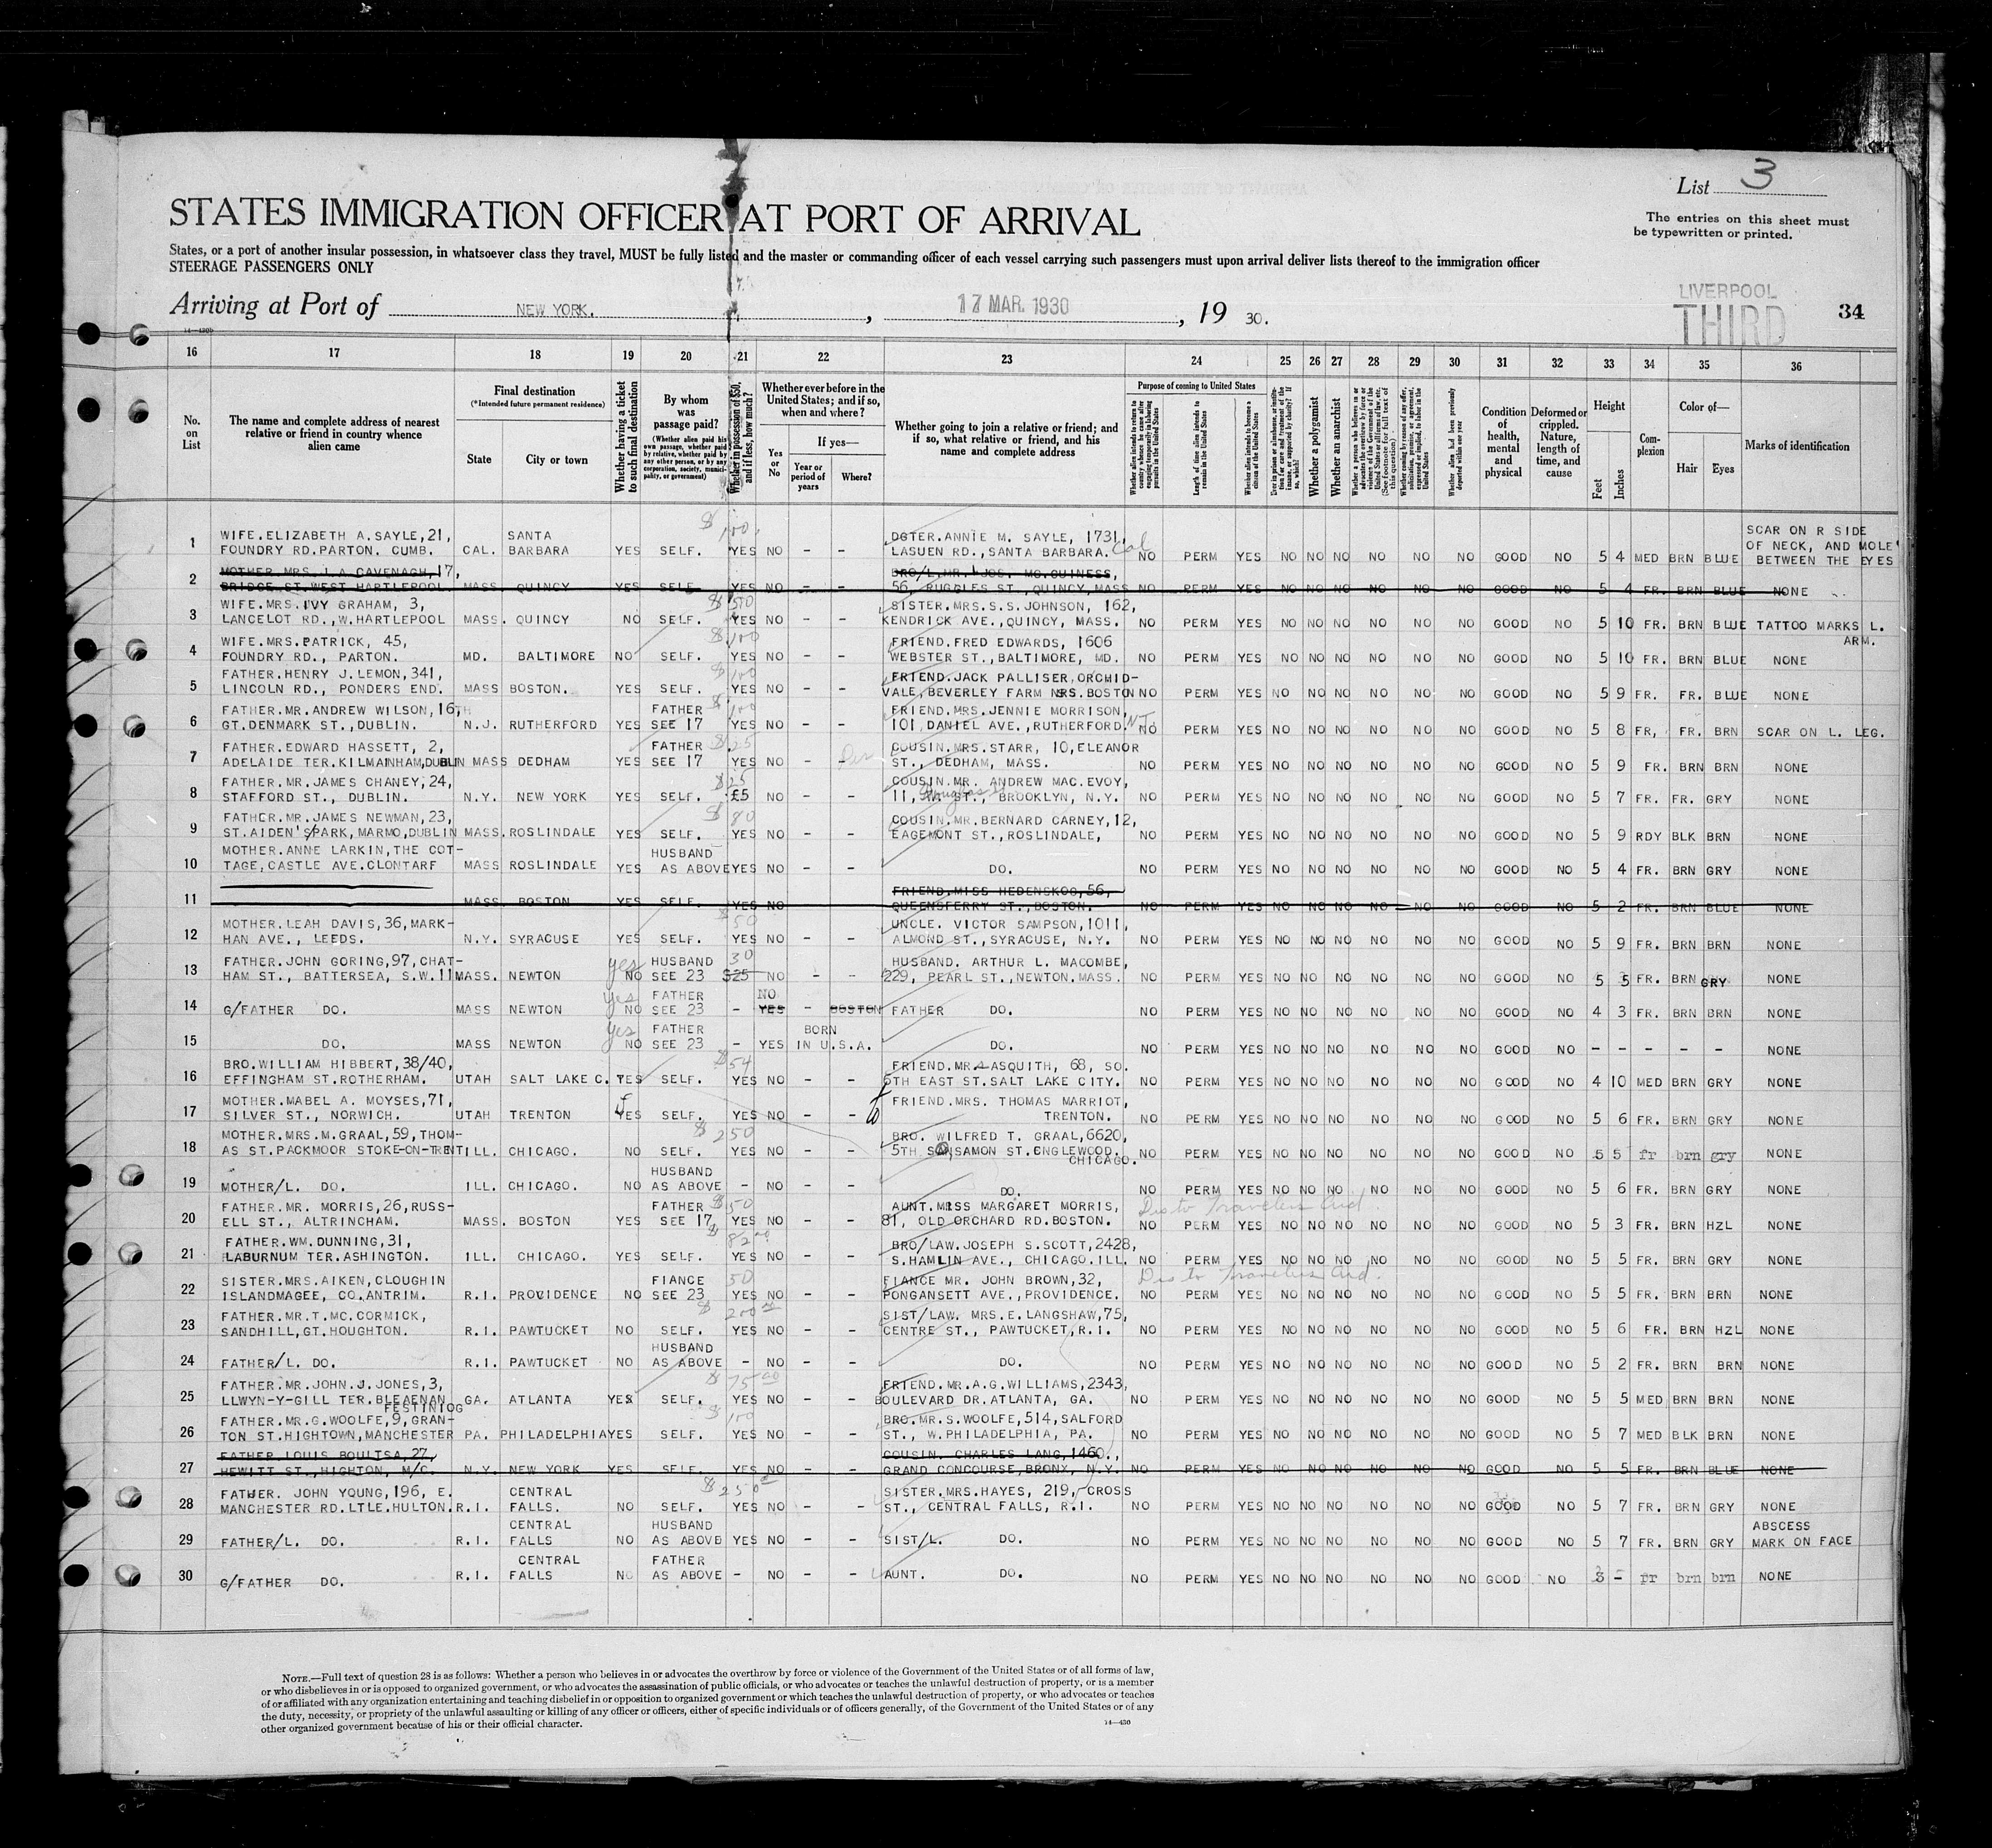 List 3
The entries on this sheet must
be typewritten or printed.
STATES IMMIGRATION OFFICER AT PORT OF ARRIVAL
States, or a port of another insular possession, in whatsoever class they travel, MUST be fully listed and the master or commanding officer of each vessel carrying such passengers must upon arrival deliver lists thereof to the immigration officer
STEERAGE PASSENGERS ONLY
Arriving at Port of NEW YORK. , 17 MAR. 1930 , 19 30.
LIVERPOOL
THIRD
34
16 17 18 19 20 21 22 23 24 25 26 27 28 29 30 31 32 33 34 35 36
No. on List
The name and complete address of nearest relative or friend in country whence alien came
Final destination
(*Intended future permanent residence)
State
City or town
Whether having a ticket to such final destination
By whom was passage paid?
(Whether alien paid his own passage, whether paid by relative, whether paid by any other person, or by any corporation, society, municipality, or government)
Whether in possession of $50, and if less, how much?
Whether ever before in the United States; and if so, when and where?
Yes or No
If yes—
Year or period of years
Where?
Whether going to join a relative or friend; and if so, what relative or friend, and his name and complete address
Purpose of coming to United States
Length of time alien intends to remain in the United States
Whether a polygamist
Whether an anarchist
Condition of health, mental and physical
Deformed or crippled. Nature, length of time, and cause
Height
Feet
Inches
Complexion
Color of—
Hair
Eyes
Marks of identification
1 WIFE.ELIZABETH A.SAYLE,21, SANTA $100. DGTER.ANNIE M. SAYLE, 1731, SCAR ON R SIDE
FOUNDRY RD.PARTON. CUMB. CAL. BARBARA YES SELF. YES NO - - LASUEN RD.,SANTA BARBARA. Cal NO PERM YES NO NO NO NO NO NO GOOD NO 5 4 MED BRN BLUE OF NECK, AND MOLE BETWEEN THE EYES
2 MOTHER MRS. J A CAVENAGH,17, BRO/L.MR. JOS. MC.GUINESS,
BRIDGE ST.WEST HARTLEPOOL. MASS. QUINCY YES SELF YES NO - - 56, RUGGLES ST., QUINCY,MASS NO PERM YES NO NO NO NO NO NO GOOD NO 5 4 FR. BRN BLUE NONE
3 WIFE.MRS.IVY GRAHAM, 3, $50 SISTER.MRS.S.S.JOHNSON, 162,
LANCELOT RD.,W.HARTLEPOOL MASS. QUINCY NO SELF. YES NO - - KENDRICK AVE.,QUINCY, MASS. NO PERM YES NO NO NO NO NO NO GOOD NO 5 10 FR. BRN BLUE TATTOO MARKS L. ARM.
4 WIFE.MRS.PATRICK, 45, $100 FRIEND.FRED EDWARDS, 1606
FOUNDRY RD., PARTON. MD. BALTIMORE NO SELF. YES NO - - WEBSTER ST.,BALTIMORE, MD. NO PERM YES NO NO NO NO NO NO GOOD NO 5 10 FR. BRN BLUE NONE
5 FATHER.HENRY J.LEMON,341, $100 FRIEND.JACK PALLISER,ORCHID-
LINCOLN RD., PONDERS END. MASS BOSTON. YES SELF. YES NO - - VALE,BEVERLEY FARM NRS.BOSTON NO PERM YES NO NO NO NO NO NO GOOD NO 5 9 FR. FR. BLUE NONE
6 FATHER.MR.ANDREW WILSON,16, FATHER $100 FRIEND.MRS.JENNIE MORRISON,
GT.DENMARK ST.,DUBLIN. N.J. RUTHERFORD YES SEE 17 YES NO - - 101,DANIEL AVE.,RUTHERFORD. NJ NO PERM YES NO NO NO NO NO NO GOOD NO 5 8 FR, FR. BRN SCAR ON L. LEG.
7 FATHER.EDWARD HASSETT, 2, FATHER $25 COUSIN.MRS.STARR, 10,ELEANOR
ADELAIDE TER.KILMAINHAM,DUBLIN MASS DEDHAM YES SEE 17 YES NO - - ST., DEDHAM, MASS. NO PERM YES NO NO NO NO NO NO GOOD NO 5 9 FR. BRN BRN NONE
8 FATHER.MR.JAMES CHANEY,24, $25 COUSIN.MR. ANDREW MAC.EVOY,
STAFFORD ST., DUBLIN. N.Y. NEW YORK YES SELF. £5 NO - - 11, ST., BROOKLYN, N.Y. NO PERM YES NO NO NO NO NO NO GOOD NO 5 7 FR. FR. GRY NONE
9 FATHER.MR.JAMES NEWMAN,23, $80 COUSIN.MR.BERNARD CARNEY,12,
ST.AIDEN'S/PARK,MARMO,DUBLIN MASS. ROSLINDALE YES SELF. YES NO - - EAGEMONT ST.,ROSLINDALE, NO PERM YES NO NO NO NO NO NO GOOD NO 5 9 RDY BLK BRN NONE
10 MOTHER.ANNE LARKIN,THE COT- HUSBAND
TAGE,CASTLE AVE.CLONTARF MASS ROSLINDALE YES AS ABOVE YES NO - - DO. NO PERM YES NO NO NO NO NO NO GOOD NO 5 4 FR. BRN GRY NONE
11 FRIEND.MISS HEDENSKOG,56,
MASS BOSTON YES SELF. YES NO QUEENSFERRY ST.,BOSTON. NO PERM YES NO NO NO NO NO NO GOOD NO 5 2 FR. BRN BLUE NONE
12 MOTHER.LEAH DAVIS,36,MARK- $50 UNCLE. VICTOR SAMPSON,1011,
HAN AVE., LEEDS. N.Y. SYRACUSE YES SELF. YES NO - - ALMOND ST.,SYRACUSE, N.Y. NO PERM YES NO NO NO NO NO NO GOOD NO 5 9 FR. BRN BRN NONE
13 FATHER.JOHN GORING,97,CHAT- yes HUSBAND 30 HUSBAND. ARTHUR L. MACOMBE,
HAM ST., BATTERSEA, S.W.11 MASS. NEWTON NO SEE 23 $25 NO - - 229, PEARL ST.,NEWTON.MASS. NO PERM YES NO NO NO NO NO NO GOOD NO 5 5 FR. BRN GRY NONE
14 yes FATHER NO
G/FATHER DO. MASS NEWTON NO SEE 23 - YES - BOSTON FATHER DO. NO PERM YES NO NO NO NO NO NO GOOD NO 4 3 FR. BRN BRN NONE
15 yes FATHER BORN
DO. MASS NEWTON NO SEE 23 - YES IN U.S.A. DO. NO PERM YES NO NO NO NO NO NO GOOD NO - - - - - NONE
16 BRO.WILLIAM HIBBERT,38/40, $54 FRIEND.MR.ASQUITH, 68, SO.
EFFINGHAM ST.ROTHERHAM. UTAH SALT LAKE C. YES SELF. YES NO - - 6TH EAST ST.SALT LAKE CITY. NO PERM YES NO NO NO NO NO NO GOOD NO 4 10 MED BRN GRY NONE
17 MOTHER.MABEL A. MOYSES,71, FRIEND.MRS. THOMAS MARRIOT,
SILVER ST., NORWICH. UTAH TRENTON YES SELF. YES NO - - TRENTON. NO PERM YES NO NO NO NO NO NO GOOD NO 5 6 FR. BRN GRY NONE
18 MOTHER.MRS.M.GRAAL,59,THOM- $250 BRO. WILFRED T. GRAAL,6620,
AS ST.PACKMOOR STOKE-ON-TRENT ILL. CHICAGO. NO SELF. YES NO - - 5TH SANSAMON ST.ENGLEWOOD. CHICAGO. NO PERM YES NO NO NO NO NO NO GOOD NO 5 5 fr brn gry NONE
19 HUSBAND
MOTHER/L. DO. ILL. CHICAGO. NO AS ABOVE - NO - - DO. NO PERM YES NO NO NO NO NO NO GOOD NO 5 6 FR. BRN GRY NONE
20 FATHER.MR. MORRIS,26,RUSS- FATHER $50 AUNT.MISS MARGARET MORRIS, Dis to Travelers Aid.
ELL ST., ALTRINCHAM. MASS. BOSTON YES SEE 17 YES NO - - 81, OLD ORCHARD RD.BOSTON. NO PERM YES NO NO NO NO NO NO GOOD NO 5 3 FR. BRN HZL NONE
21 FATHER.WM.DUNNING,31, $82.00 BRO/LAW.JOSEPH S.SCOTT,2428,
LABURNUM TER.ASHINGTON. ILL. CHICAGO. YES SELF. YES NO - - S.HAMLIN AVE., CHICAGO.ILL. NO PERM YES NO NO NO NO NO NO GOOD NO 5 5 FR. BRN GRY NONE
22 SISTER.MRS.AIKEN,CLOUGHIN FIANCE 50 FIANCE MR. JOHN BROWN,32, Dis to Travelers Aid.
ISLANDMAGEE, CO.ANTRIM. R.I. PROVIDENCE NO SEE 23 YES NO - - PONGANSETT AVE.,PROVIDENCE. NO PERM YES NO NO NO NO NO NO GOOD NO 5 5 FR. BRN BRN NONE
23 FATHER.MR.T.MC.CORMICK, $200.00 SIST/LAW. MRS.E.LANGSHAW,75,
SANDHILL,GT.HOUGHTON. R.I. PAWTUCKET NO SELF. YES NO - - CENTRE ST., PAWTUCKET,R.I. NO PERM YES NO NO NO NO NO NO GOOD NO 5 6 FR. BRN HZL NONE
24 HUSBAND
FATHER/L. DO. R.I. PAWTUCKET NO AS ABOVE - NO - - DO. NO PERM YES NO NO NO NO NO NO GOOD NO 5 2 FR. BRN BRN NONE
25 FATHER.MR.JOHN.J.JONES,3, $75.00 FRIEND.MR.A.G.WILLIAMS,2343,
LLWYN-Y-GILL TER.BLEAENAN FESTINIOG GA. ATLANTA YES SELF. YES NO - - BOULEVARD DR.ATLANTA, GA. NO PERM YES NO NO NO NO NO NO GOOD NO 5 5 MED BRN BRN NONE
26 FATHER.MR.G.WOOLFE,9,GRAN- $100 BRO.MR.S.WOOLFE,514,SALFORD
TON ST.HIGHTOWN,MANCHESTER PA. PHILADELPHIA YES SELF. YES NO - - ST., W.PHILADELPHIA, PA. NO PERM YES NO NO NO NO NO NO GOOD NO 5 7 MED BLK BRN NONE
27 FATHER LOUIS BOULTSA,27, COUSIN. CHARLES LANG,1460.,
HEWITT ST.,HIGHTON, M/C. N.Y. NEW YORK YES SELF. YES NO - - GRAND CONCOURSE,BRONX, N.Y. NO PERM YES NO NO NO NO NO NO GOOD NO 5 5 FR. BRN BLUE NONE
28 FATHER. JOHN YOUNG,196, E. CENTRAL $250.00 SISTER.MRS.HAYES, 219, CROSS
MANCHESTER RD.LTLE.HULTON. R.I. FALLS. NO SELF. YES NO - - ST., CENTRAL FALLS, R.I. NO PERM YES NO NO NO NO NO NO GOOD NO 5 7 FR. BRN GRY NONE
29 CENTRAL HUSBAND ABSCESS
FATHER/L. DO. R.I. FALLS NO AS ABOVE YES NO - - SIST/L. DO. NO PERM YES NO NO NO NO NO NO GOOD NO 5 7 FR. BRN GRY MARK ON FACE
30 CENTRAL FATHER
G/FATHER DO. R.I. FALLS NO AS ABOVE - NO - - AUNT. DO. NO PERM YES NO NO NO NO NO NO GOOD NO 3 - fr brn brn NONE
NOTE.—Full text of question 28 is as follows: Whether a person who believes in or advocates the overthrow by force or violence of the Government of the United States or of all forms of law,
or who disbelieves in or is opposed to organized government, or who advocates the assassination of public officials, or who advocates or teaches the unlawful destruction of property, or is a member
of or affiliated with any organization entertaining and teaching disbelief in or opposition to organized government or which teaches the unlawful destruction of property, or who advocates or teaches
the duty, necessity, or propriety of the unlawful assaulting or killing of any officer or officers, either of specific individuals or of officers generally, of the Government of the United States or of any
other organized government because of his or their official character.
14—430